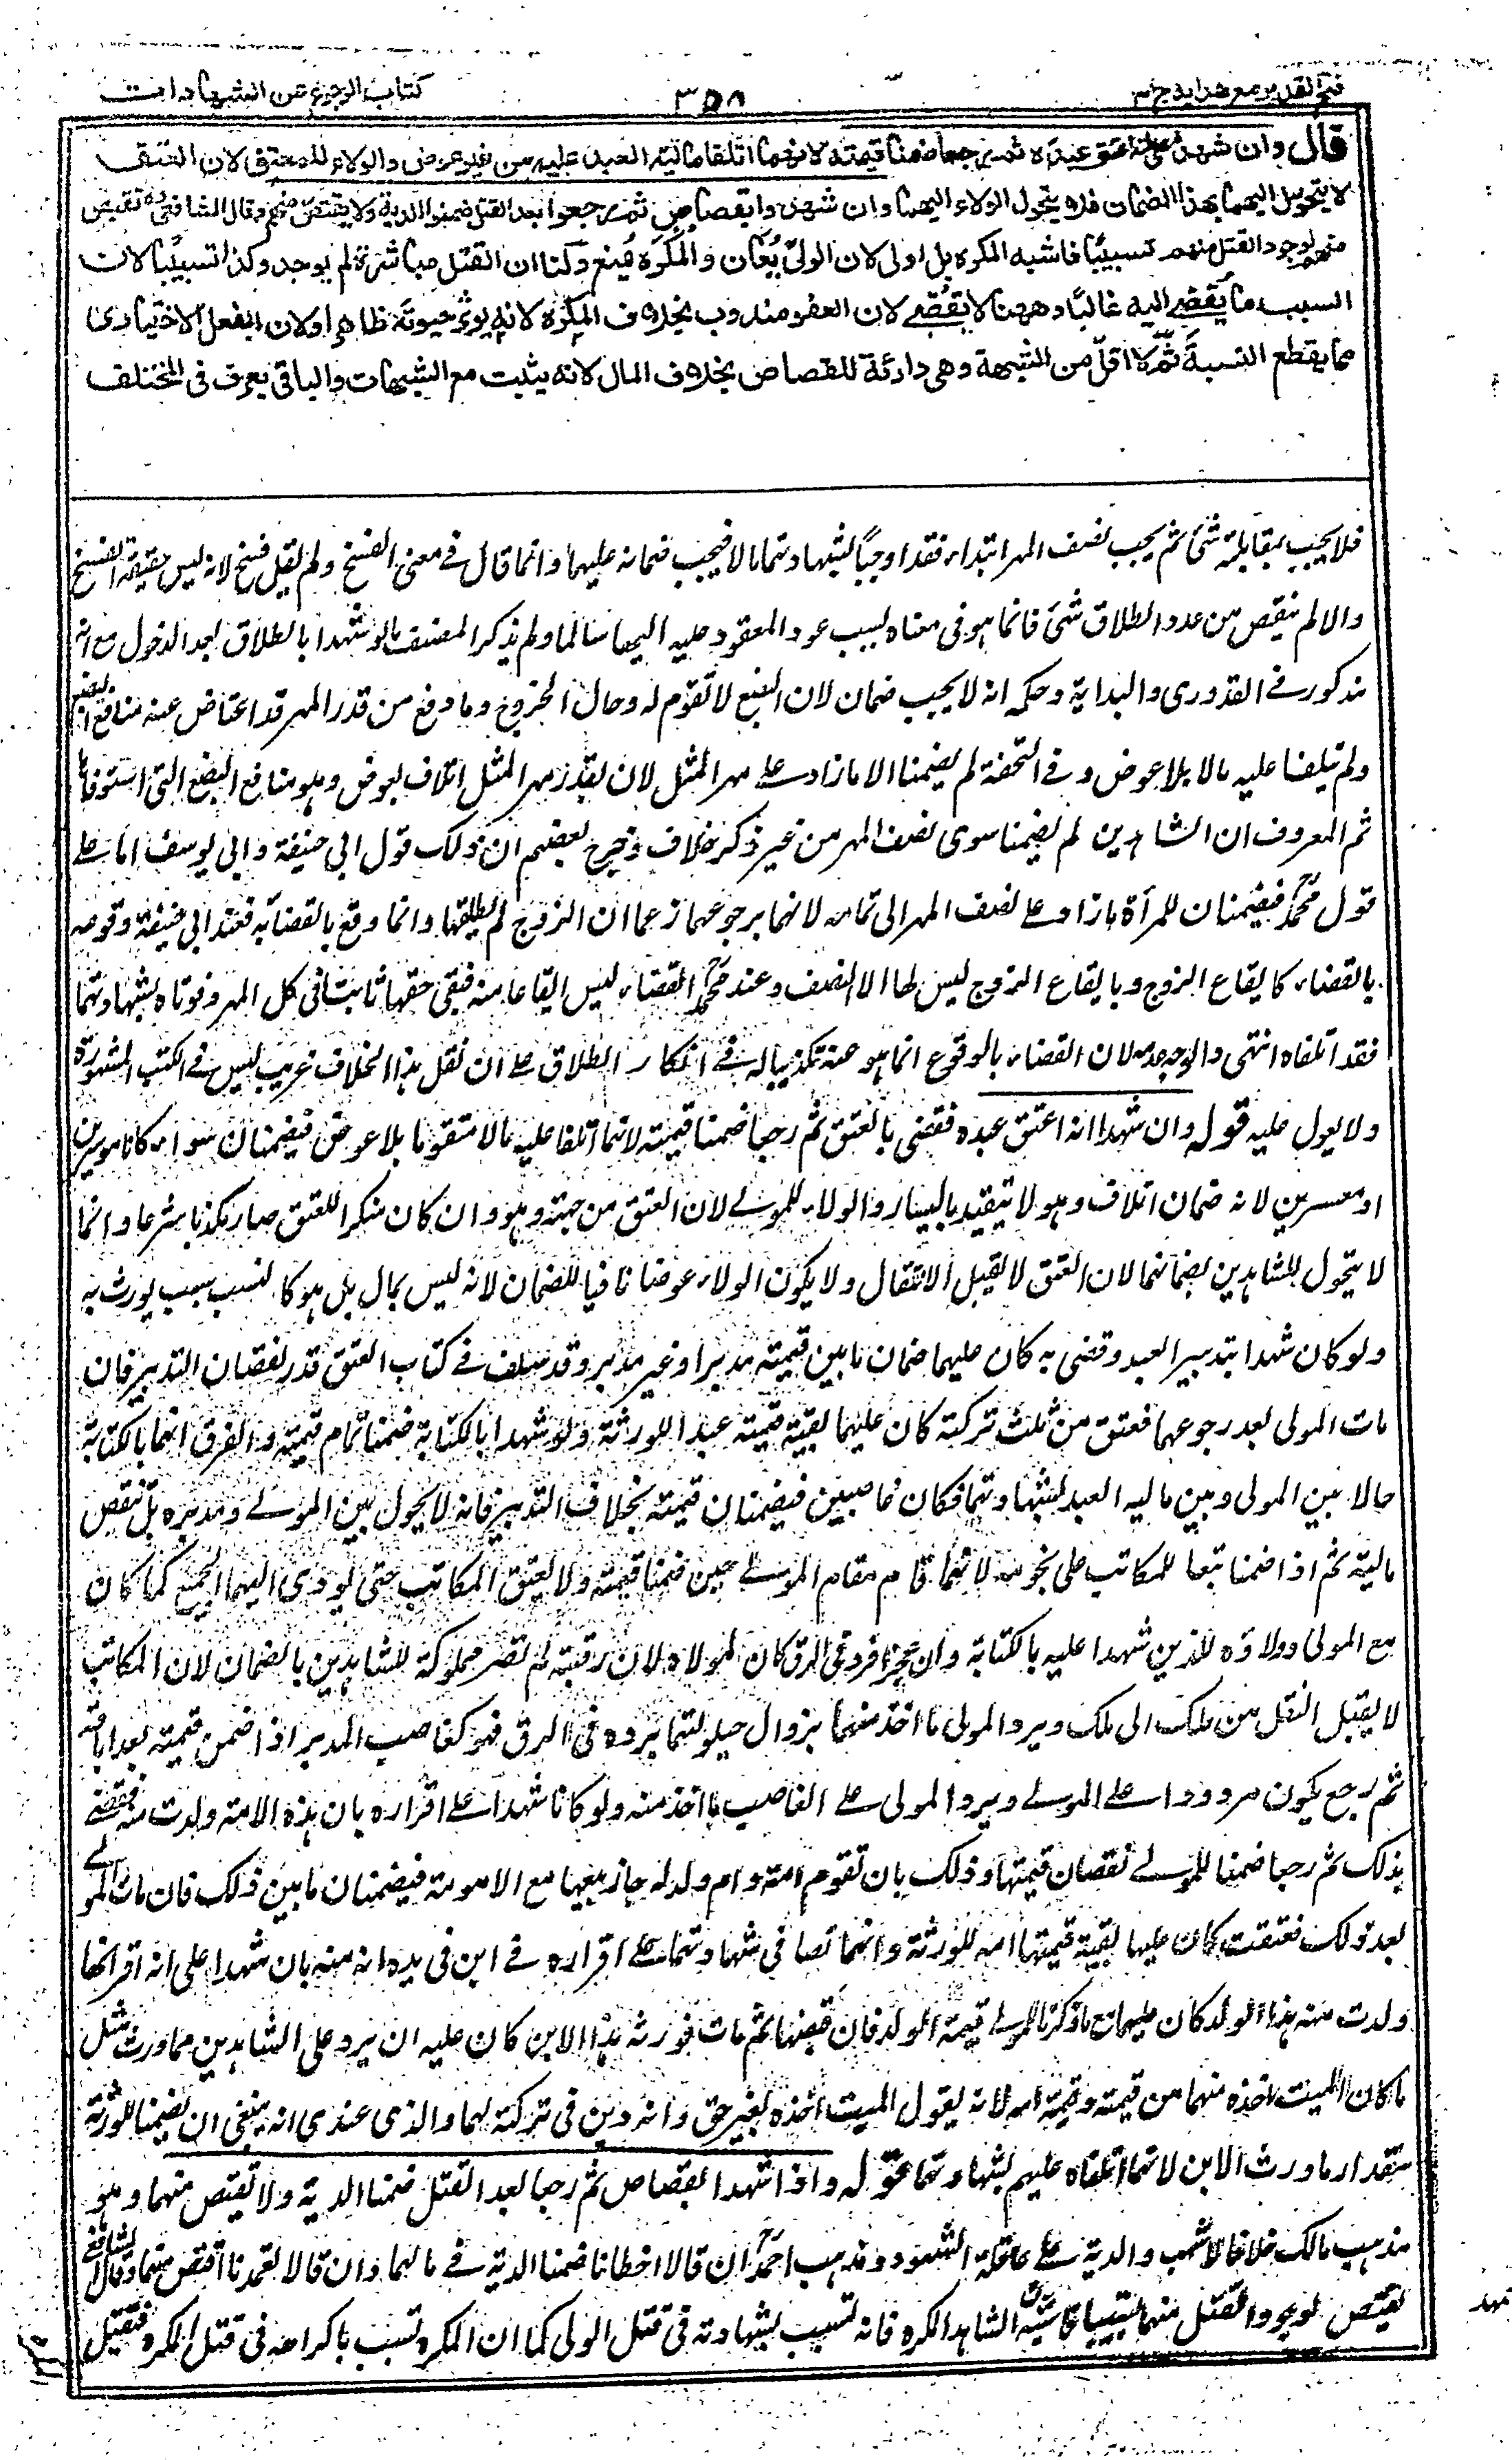 فتح القدير مع هداية ج ٣
٣٥٨
كتاب الرجوع عن الشهادات
قال وان شهدا على انه اعتق عبده ثم رجعا ضمنا قيمته لانهما اتلفا مالية العبد عليه من غير عوض والولاء للمعتق لان العتق
لا يتحول اليهما بهذا الضمان فلا يتحول الولاء اليهما وان شهدوا بقصاص ثم رجعوا بعد القتل ضمنوا الدية ولا يقتص منهم وقال الشافعي رہ تقتص
منهم لوجود القتل منهم تسبيبًا فاشبه المكره بل اولى لان الولىّ يُعَان والمكرَه يُمنع ولنا ان القتل مباشرة لم يوجد وكذا تسبيبًا لان
السبب ما يُفضے اليه غالبًا وههنا لا يُفضے لان العفو مندوب بخلاف المكرَه لانه يوثر حيوته ظاهرا ولان الفعل الاختيارى
مما يقطع النسبة ثم لا اقلّ من الشبهة وهى دارئة للقصاص بخلاف المال لانه يثبت مع الشبهات والباقى يعرف فى المختلف
فلا يجب بمقابلته شئ ثم يجب نصف المهر ابتداء فقد اوجبا بشهادتهما مالا فيجب ضمانه عليهما وانما قال فے معنى الفسخ ولم يقل فسخ لانه ليس حقيقة الفسخ
والا لم ينقص من عدد الطلاق شئ فانما هو فى معناه بسبب عود المعقود عليه اليها سالما ولم يذكر المصنف ما لو شهدا بالطلاق بعد الدخول مع انه
مذكور فے القدورى والبداية وحكمه انه لا يجب ضمان لان البضع لا تقوم له وحال الخروج وما دفع من قدر المهر قد اعتاض عنه منافع البضع
ولم يتلفا عليه مالا بلا عوض وفے التحفة لم يضمنا الا ما زاد علے مهر المثل لان بقدر مهر المثل اتلاف بعوض وهو منافع البضع التى استوفاها
ثم المعروف ان الشاهدين لم يضمنا سوى نصف المهر من غير ذكر خلاف وخرج بعضهم ان ذلك قول ابى حنيفة وابى يوسف اما علے
قول محمد فيضمنان للمرأة ما زاد علے نصف المهر الى تمامه لانهما برجوعهما زعما ان الزوج لم يطلقها وانما وقع بالقضاء به فعند ابى حنيفة وقوعه
بالقضاء كايقاع الزوج وبايقاع الزوج ليس لها الا النصف وعند محمد القضاء ليس ايقاعا منه فبقى حقها ثابتا فى كل المهر وفوتاه بشهادتهما
فقد اتلفاه انتهى والوجه عدمه لان القضاء بالوقوع انما هو عنه تكذيبا له فے انكار الطلاق علے ان نقل هذا الخلاف غريب ليس فے الكتب المشهورة
ولا يعول عليه قوله وان شهدا انه اعتق عبده فقضى بالعتق ثم رجعا ضمنا قيمته لانهما اتلفا عليه مالا متقوما بلا عوض فيضمنان سواء كانا موسرين
او معسرين لانه ضمان اتلاف وهو لا يتقيد باليسار والولاء للمولے لان العتق من جهته وهو وان كان منكرا للعتق صار مكذبا شرعا وانما
لا يتحول للشاهدين بضمانهما لان العتق لا يقبل الانتقال ولا يكون الولاء عوضا نافيا للضمان لانه ليس بمال بل هو كالنسب سبب يورث به
ولو كان شهدا بتدبير العبد وقضى به كان عليهما ضمان ما بين قيمته مدبرا وغير مدبر وقد سلف فے كتاب العتق قدر نقصان التدبير فان
مات المولى بعد رجوعهما فعتق من ثلث تركته كان عليهما بقية قيمته عبدا للورثة ولو شهدا بالكتابة ضمنا تمام قيمته والفرق انهما بالكتابة
حالا بين المولى وبين مالية العبد بشهادتهما فكانا غاصبين فيضمنان قيمته بخلاف التدبير فانه لا يحول بين المولے ومدبره بل تنقص
ماليته ثم اذا ضمنا تبعا للمكاتب على نجومه لانهما قاما مقام المولے حين ضمنا قيمته ولا يعتق المكاتب حتى يؤدى اليهما الجميع كما كان
مع المولى وولاؤه للذين شهدا عليه بالكتابة وان عجز فرد فى الرق كان لمولاه لان رقبته لم تصر مملوكة للشاهدين بالضمان لان المكاتب
لا يقبل النقل من ملك الى ملك ويرد المولى ما اخذ منهما بزوال حيلولتهما برده فى الرق فهو كغاصب المدبر اذا ضمن قيمته بعد اباقه
ثم رجع يكون مردودا علے المولے ويرد المولى علے الغاصب ما اخذ منه ولو كانا شهدا علے اقراره بان هذه الامة ولدت منه فقضے
بذلك ثم رجعا ضمنا للمولے نقصان قيمتها وذلك بان تقوم امة وام ولد لو جاز بيعها مع الامومة فيضمنان ما بين ذلك فان مات المولے
بعد ذلك فعتقت كان عليهما بقية قيمتها امة للورثة وانهما نصا فى شهادتهما علے اقراره فے ابن فى يده انه منه بان شهدا على انه اقر انها
ولدت منه هذا الولد كان عليهما مع ما ذكرنا للمولے قيمة الولد فان قبضها ثم مات فورثه هذا الابن كان عليه ان يرد على الشاهدين مما ورث مثل
ما كان الميت اخذه منهما من قيمته وقيمة امه لانه يقول الميت اخذه بغير حق وانه دين فى تركته لهما والذى عندى انه ينبغى ان يضمنا للورثة
مقدار ما ورث الابن لانهما اتلفاه عليهم بشهادتهما قوله واذا شهدا بقصاص ثم رجعا بعد القتل ضمنا الدية ولا يقتص منهما وهو
مذهب مالك خلافا لاشهب والدية علے عاقلة الشهود ومذهب احمد ان قالا اخطانا ضمنا الدية فے مالهما وان قالا تعمدنا اقتص منهما وقال الشافعے
يقتص لوجود القتل منهما تسبيبا الشاهد المكره فانه تسبب بشهادته فى قتل الولى كما ان المكره تسبب باكراهه فى قتل المكره فيقتل